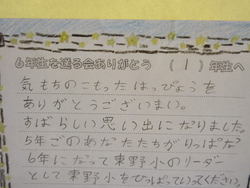 6年生を送る会ありがとう （1）年生へ
気もちのこもったはっぴょうを
ありがとうございまし。
すばらしい思い出になりました
5年ごのあなたたちがりっぱな
6年になって東野小のリーダー
として東野小をひっぱっていってください